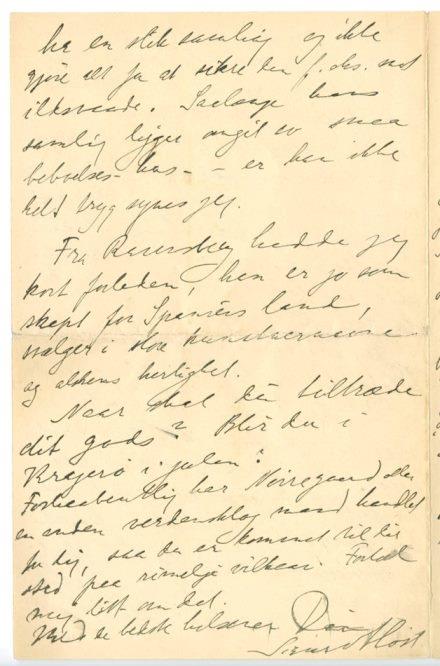 ha en slik samling og ikke
gjøre alt for at sikre den f. eks. mot
ildsvaade. Saalænge hans
samling ligger omgit av smaa
beboelses-hus - er han ikke
helt tryg synes jeg.
Fra Ravensberg hadde jeg
kort forleden, han er jo som
skapt for Spaniens land,
vælger i store kunstnernavne
og alskens herlighet.
Naar skal du tiltræde
dit gods? Blir du i
Kragerø i julen?
Forhaabentlig har Nørregaard eller
en anden verdensklog mand handlet
for dig, saa du er kommet til dit
sted paa rimelige vilkaar. Fortæl
mig litt om det.
Med de bedste hilsener Din
Sigurd Høst